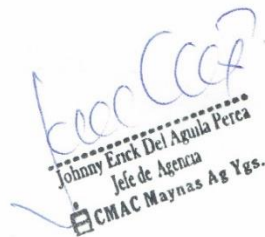 Johnny Erick Del Aguila Perea
Jefe de Agencia
CMAC Maynas Ag Ygs.